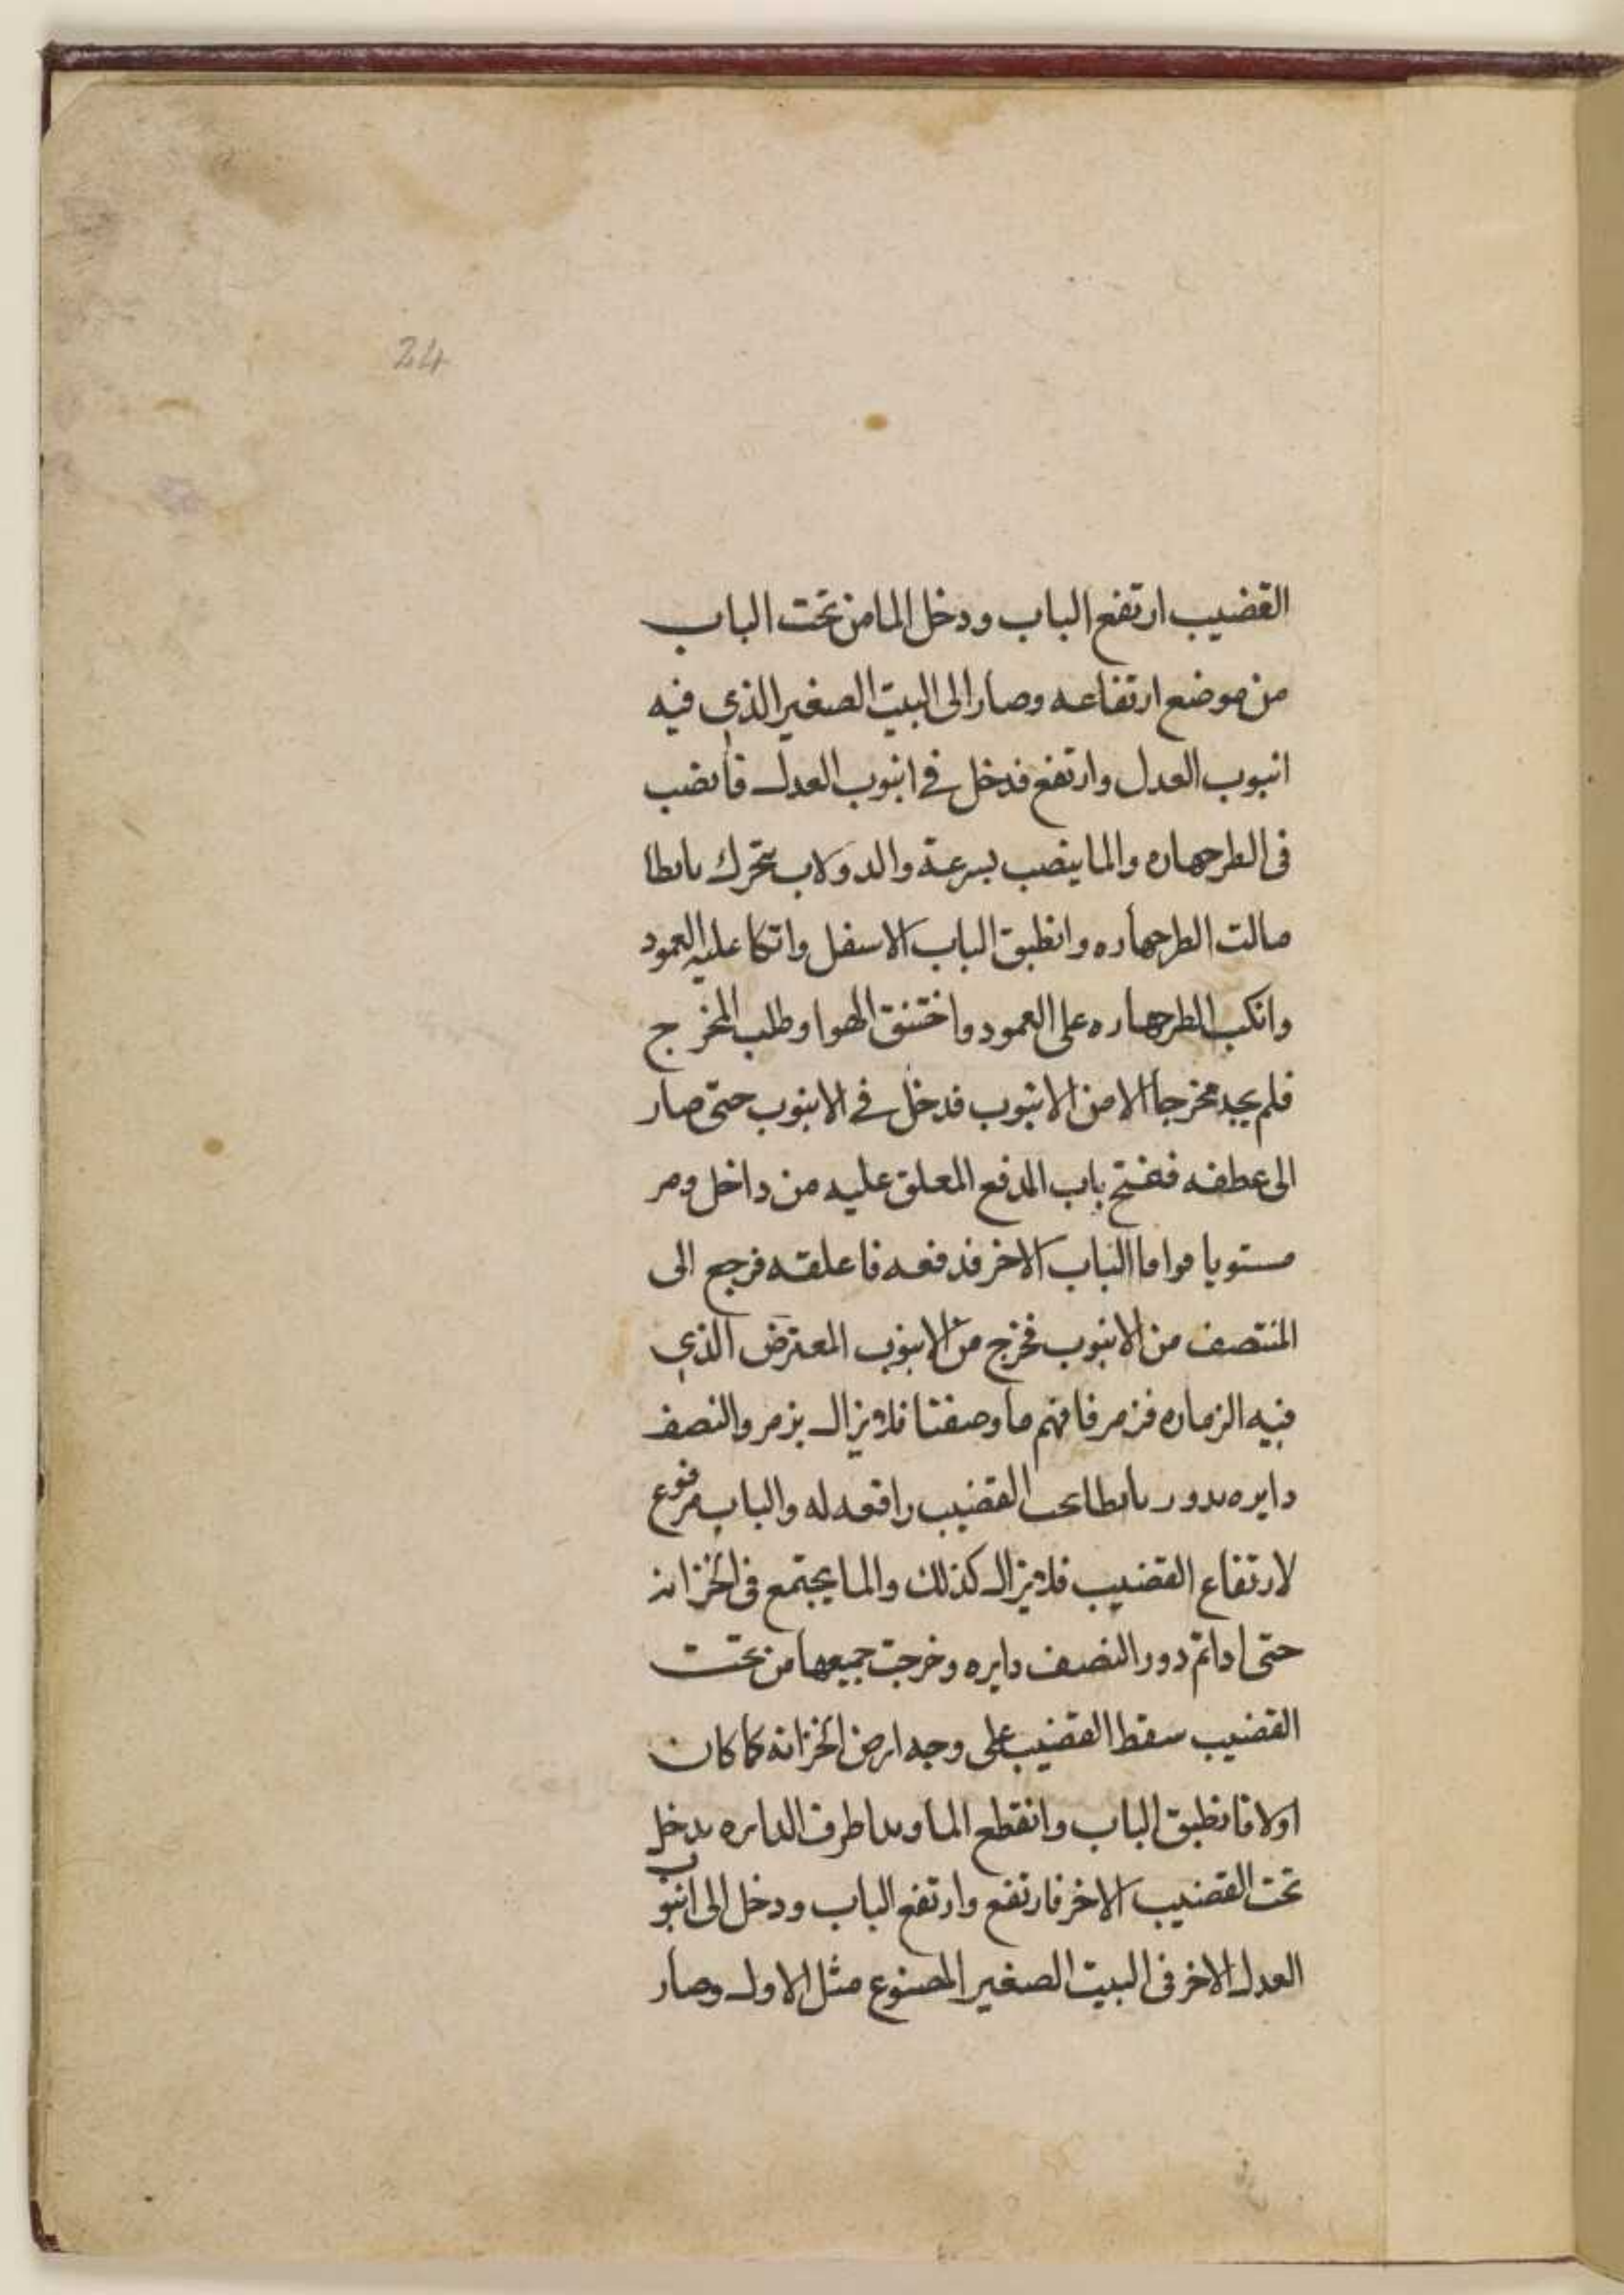 24
القضيب ارتفع الباب ودخل الما من تحت الباب
من موضع ارتفاعه وصار الى البيت الصغير الذي فيه
انبوب العدل وارتفع فدخل في انبوب العدل فانصب
فى الطرجهاره والما ينصب بسرعة والدولاب يتحرك بابطا
مالت الطرجهاره وانطبق الباب الاسفل واتكا عليه العمود
وانكب الطرجهاره على العمود واختنق الهوا وطلب المخرج
فلم يجد مخرجا الا من الانبوب فدخل في الانبوب حتى صار
الى عطفه ففتح باب المدفع المعلق عليه من داخل ومر
مستويا فوافا الباب الاخر فدفعه فاغلقه فرجع الى
المنتصف من الانبوب فخرج من الانبوب المعترض الذي
فيه الزماره فزمر فافهم ما وصفنا فلا يزال يزمر والنصف
دايره يدور بابطا تحت القضيب رافعه له والباب مرفوع
لارتفاع القضيب فلا يزال كذلك والما يجتمع فى الخزانه
حتى اذا تم دور النصف دايره وخرجت جميعها من تحت
القضيب سقط القضيب على وجه ارض الخزانه كما كان
اولا فانطبق الباب وانقطع الما وبدا طرف الدايره يدخل
تحت القضيب الاخر فارتفع وارتفع الباب ودخل الى انبوب
العدل الاخر فى البيت الصغير المصنوع مثل الاول وصار